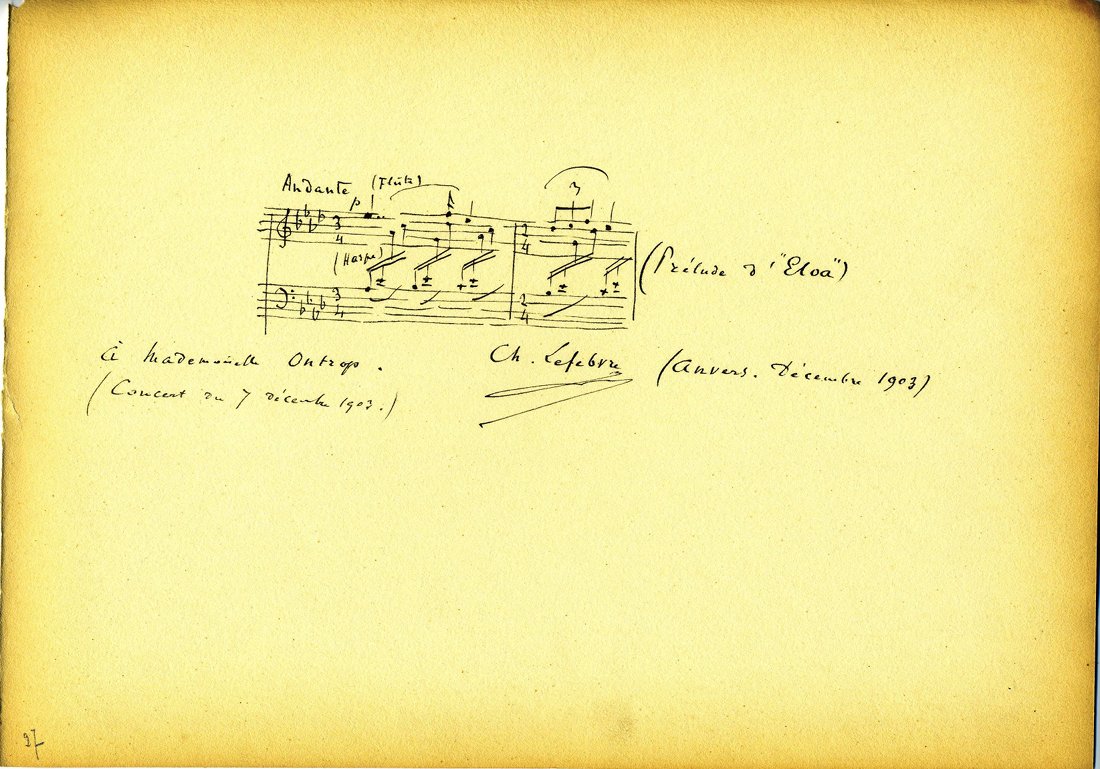 Andante (Flûte)
p
3
3 4
2 4
(Harpe)
3 4
2 4
(Prélude d'"Eloa")
à Mademoiselle Ontrop.
(Concert du 7 décembre 1903.)
Ch. Lefebvre
(Anvers. Décembre 1903)
97